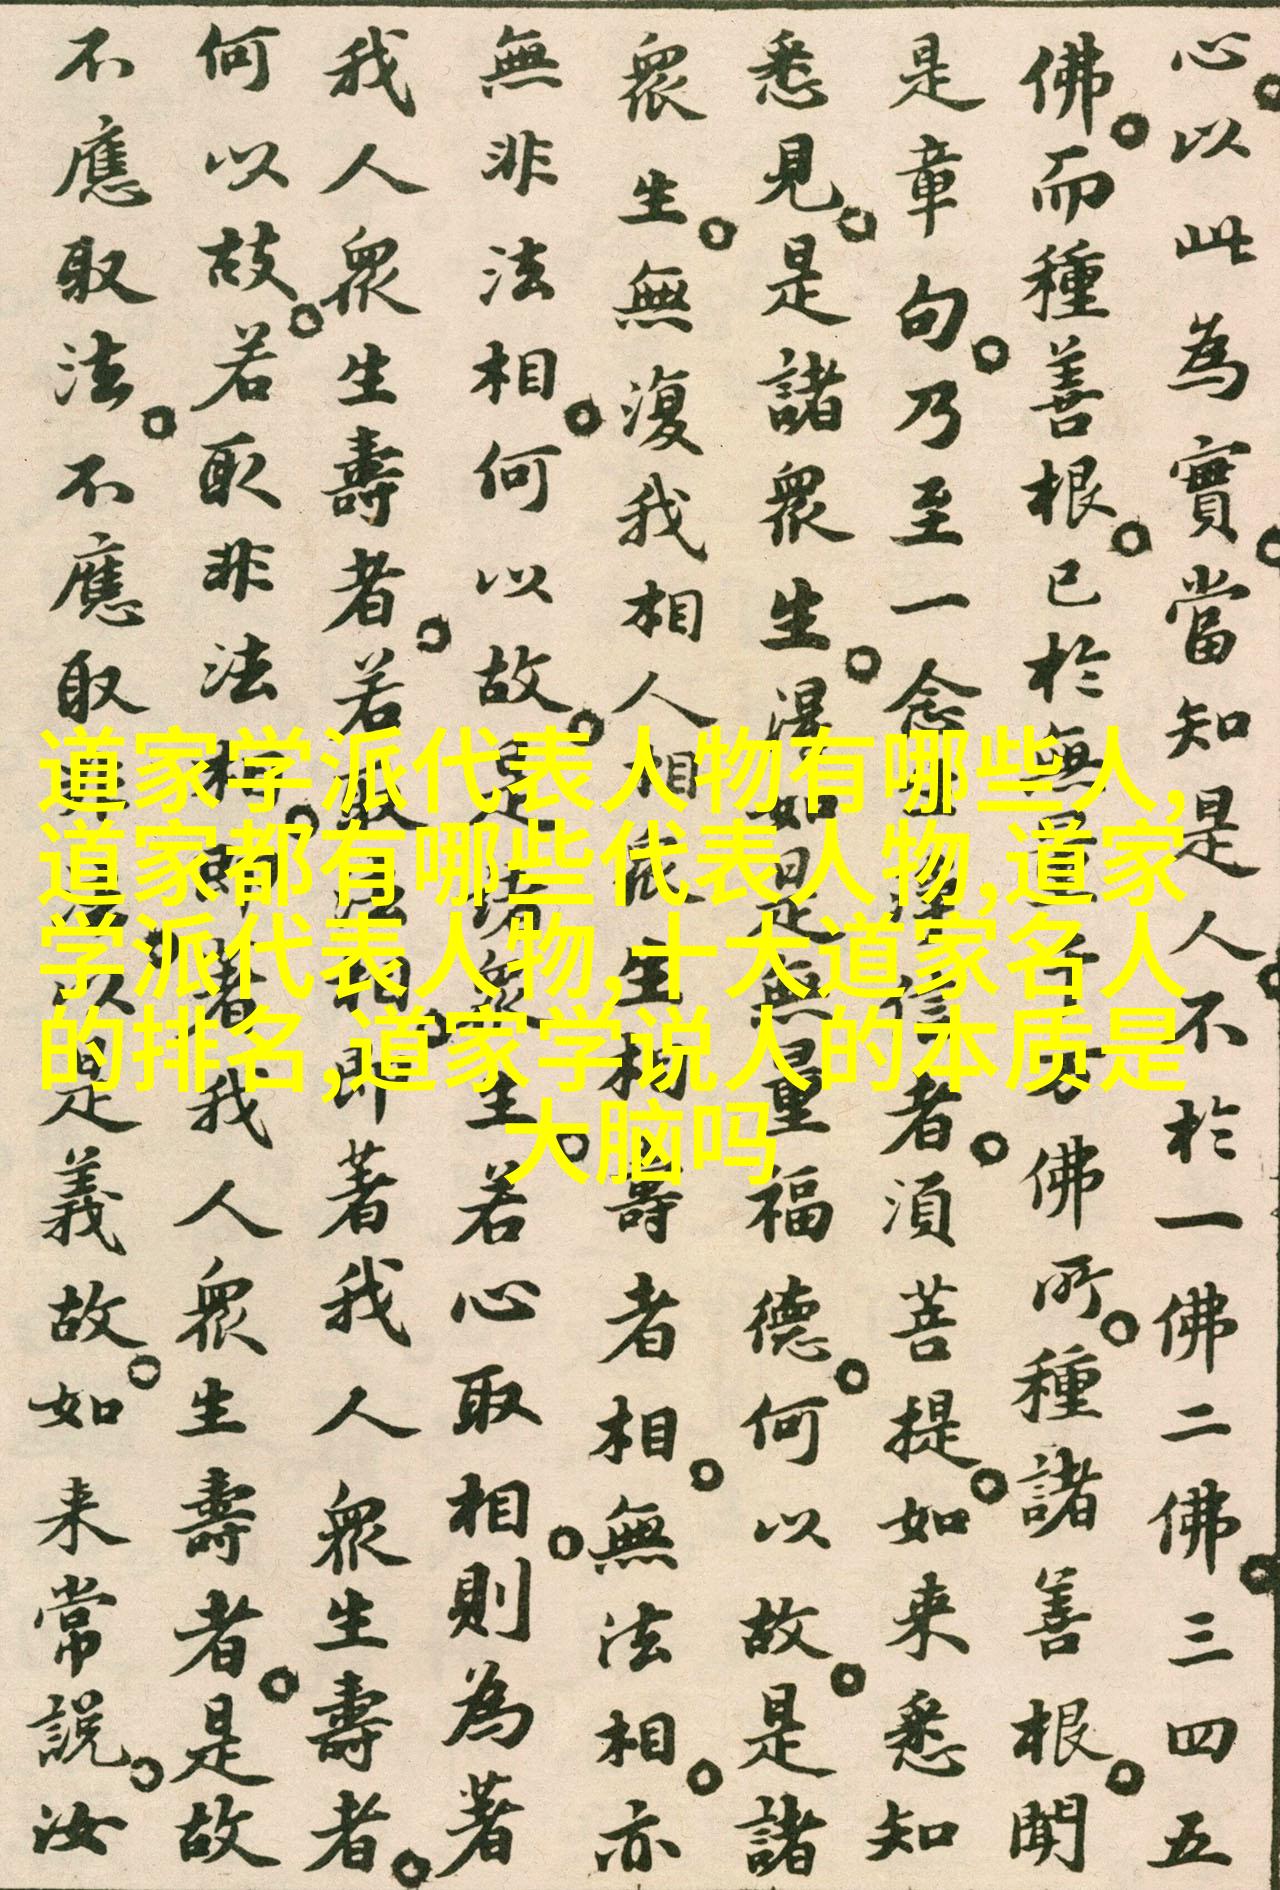 心。以此為實。當知是人。不於一佛二佛。三四五
佛。而種善根。已於無量千万佛所。種諸善根。聞
是章句。乃至一念生淨信者。須菩提。如来悉知
悉見。是諸衆生。得如是無量福德。何以故。是諸
衆生。無復我相人相衆生相壽者相。無法相。亦
無非法相。何以故。是諸衆生。若心取相。則為著
我人衆生壽者。若取法相。即著我人衆生壽者。
何以故。若取非法相。即著我人衆生壽者。是故
不應取法。不應取非法。以是義故。如来常說。汝
道家学派代表人物有哪些人,
道家都有哪些代表人物,道家
学派代表人物,十大道家名人
的排名,道家学说人的本质是
大脑吗